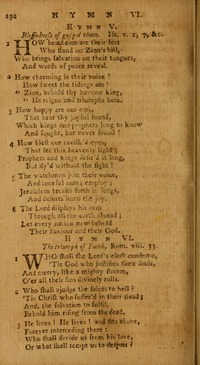 292 HYMN VI.
HYMN V.
Blessedness of gospel times. Isa. v. 2, 7, &c.
1 HOW beauteous are their feet
Who stand on Zion's hill,
Who brings salvation on their tongues,
And words of peace reveal.
2 How charming is their voice!
How sweet the tidings are!
"Zion, behold thy saviour king,
"He reigns and triumphs here.
3 How happy are our ears,
That hear this joyful sound,
Which kings and prophets long to know
And sought, but never found!
4 How blest our ravish'd eyes,
That see this heavenly light;
Prophets and kings desir'd it long,
But dy'd without the sight!
5 The watchmen join their voice,
And tuneful notes employ;
Jerusalem breaks forth in songs,
And deserts learn the joy.
6 The Lord displays his arm
Through all the earth abroad;
Let every nation now behold
Their saviour and their God.
HYMN VI.
The triumph of faith, Rom. viii. 33.
1 WHO shall the Lord's elect condemn,
'Tis God who justifies their souls,
And mercy, like a mighty stream,
O'er all their sins divinely rolls.
2 Who shall ajudge the saints to hell?
'Tis Christ who suffer'd in their stead;
And, the salvation to fulfil,
Behold him rising from the dead.
3 He lives! He lives! and sits above,
Forever interceding there:
Who shall divide us from his love,
Or what shall tempt us to despair?